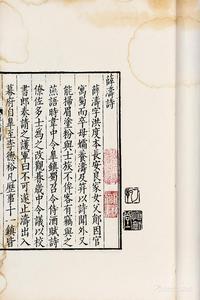 薛濤詩
薛濤字洪度本長安良家女父鄖因官
寓蜀而卒母孀養濤及笄以詩聞外又
能掃眉塗粉與士族不侔客有竊與之
燕語時韋中令皐鎮蜀召令侍酒賦詩
僚佐多士為之改觀朞歲中令議以校
書郎奏請之護軍曰不可遂止濤出入
幕府自皐至李德裕凡歷事十一鎮皆